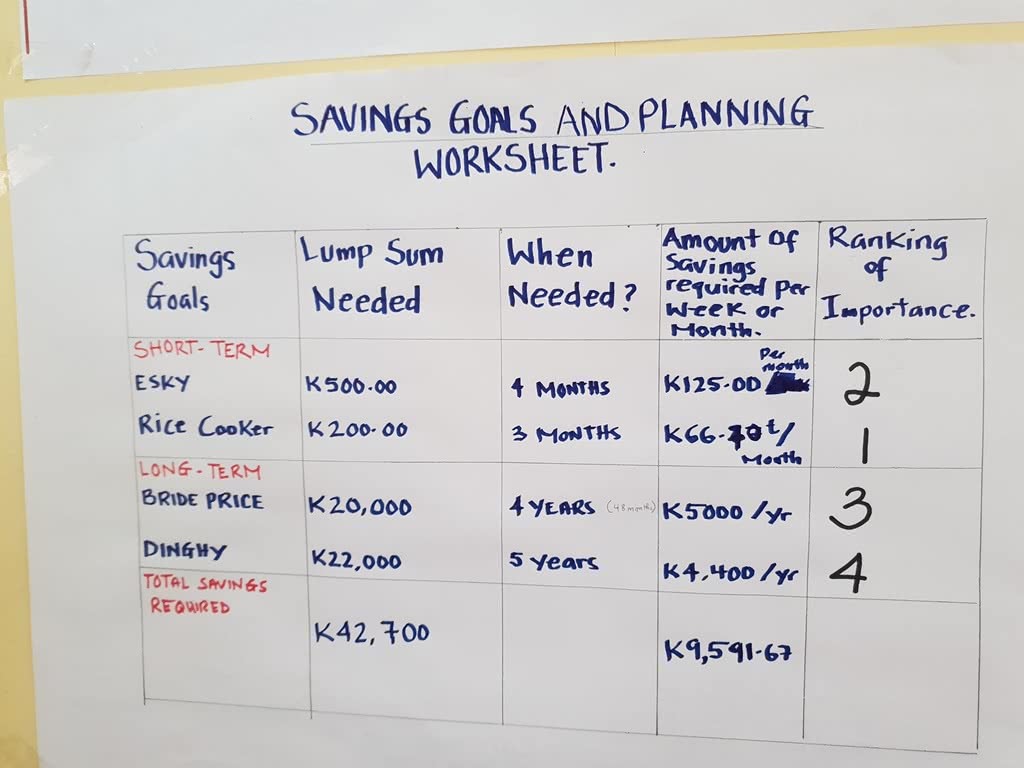 SAVINGS GOALS AND PLANNING
WORKSHEET.
Savings
Goals
Lump Sum
Needed
When
Needed?
Amount Of
Savings
required per
Week or
Month.
Ranking
of
Importance.
SHORT-TERM
ESKY
K500.00
4 MONTHS
K125.00
Per
month
2
Rice Cooker
K200.00
3 MONTHS
K66.70t/
Month
1
LONG-TERM
BRIDE PRICE
K20,000
4 YEARS (48 months)
K5000/yr
3
DINGHY
K22,000
5 years
K4,400/yr
4
TOTAL SAVINGS
REQUIRED
K42,700
K9,591.67